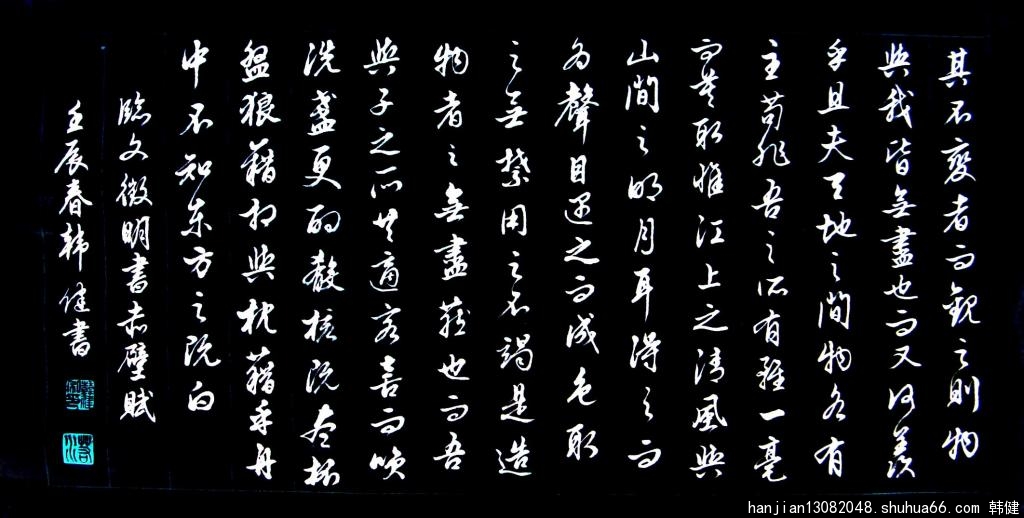 其不變者而觀之則物
與我皆無盡也而又何羨
乎且夫天地之間物各有
主苟非吾之所有雖一毫
而莫取惟江上之清風與
山間之明月耳得之而
為聲目遇之而成色取
之無禁用之不竭是造
物者之無盡藏也而吾
與子之所共適客喜而笑
洗盞更酌殽核既尽杯
盤狼藉相與枕藉乎舟
中不知東方之既白
臨文徵明書赤壁賦
壬辰春韩健書
hanjian13082048.shuhua66.com 韩健